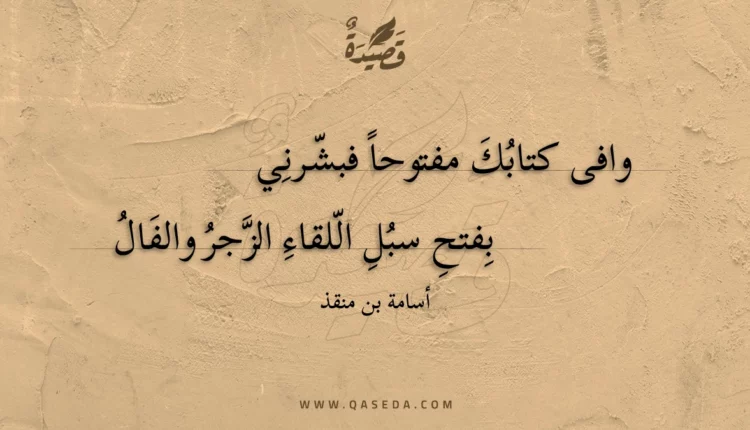 قَصِيْدَةٌ
وافى كتابُكَ مفتوحاً فبشّرنِي
بِفتحِ سبُلِ الّلقاءِ الزَّجرُ والفَالُ
أسامة بن منقذ
WWW.QASEDA.COM